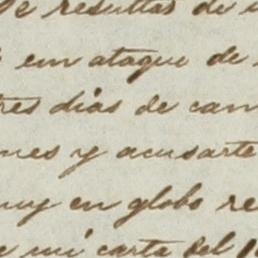 De resultas de u
en ataque de
tres dias de cam
nes y acusarte
muy en globo re
e mi carta del 1